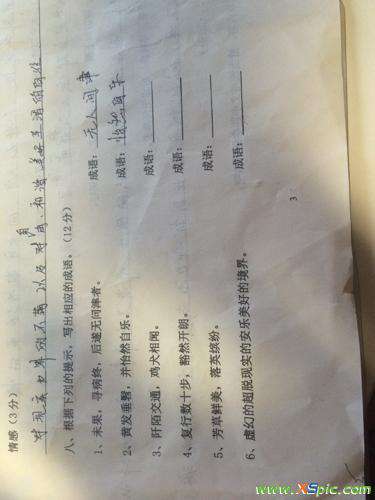 情感（3分）
对现实世界的不满以及对自由、和谐、美好生活的向往
八、根据下列的提示，写出相应的成语。（12分）
1、未果，寻病终，后遂无问津者。 成语：无人问津
2、黄发垂髫，并怡然自乐。 成语：怡然自乐
3、阡陌交通，鸡犬相闻。 成语：
4、复行数十步，豁然开朗。 成语：
5、芳草鲜美，落英缤纷。 成语：
6、虚幻的超脱现实的安乐美好的境界。 成语：
3
www.XSpic.com